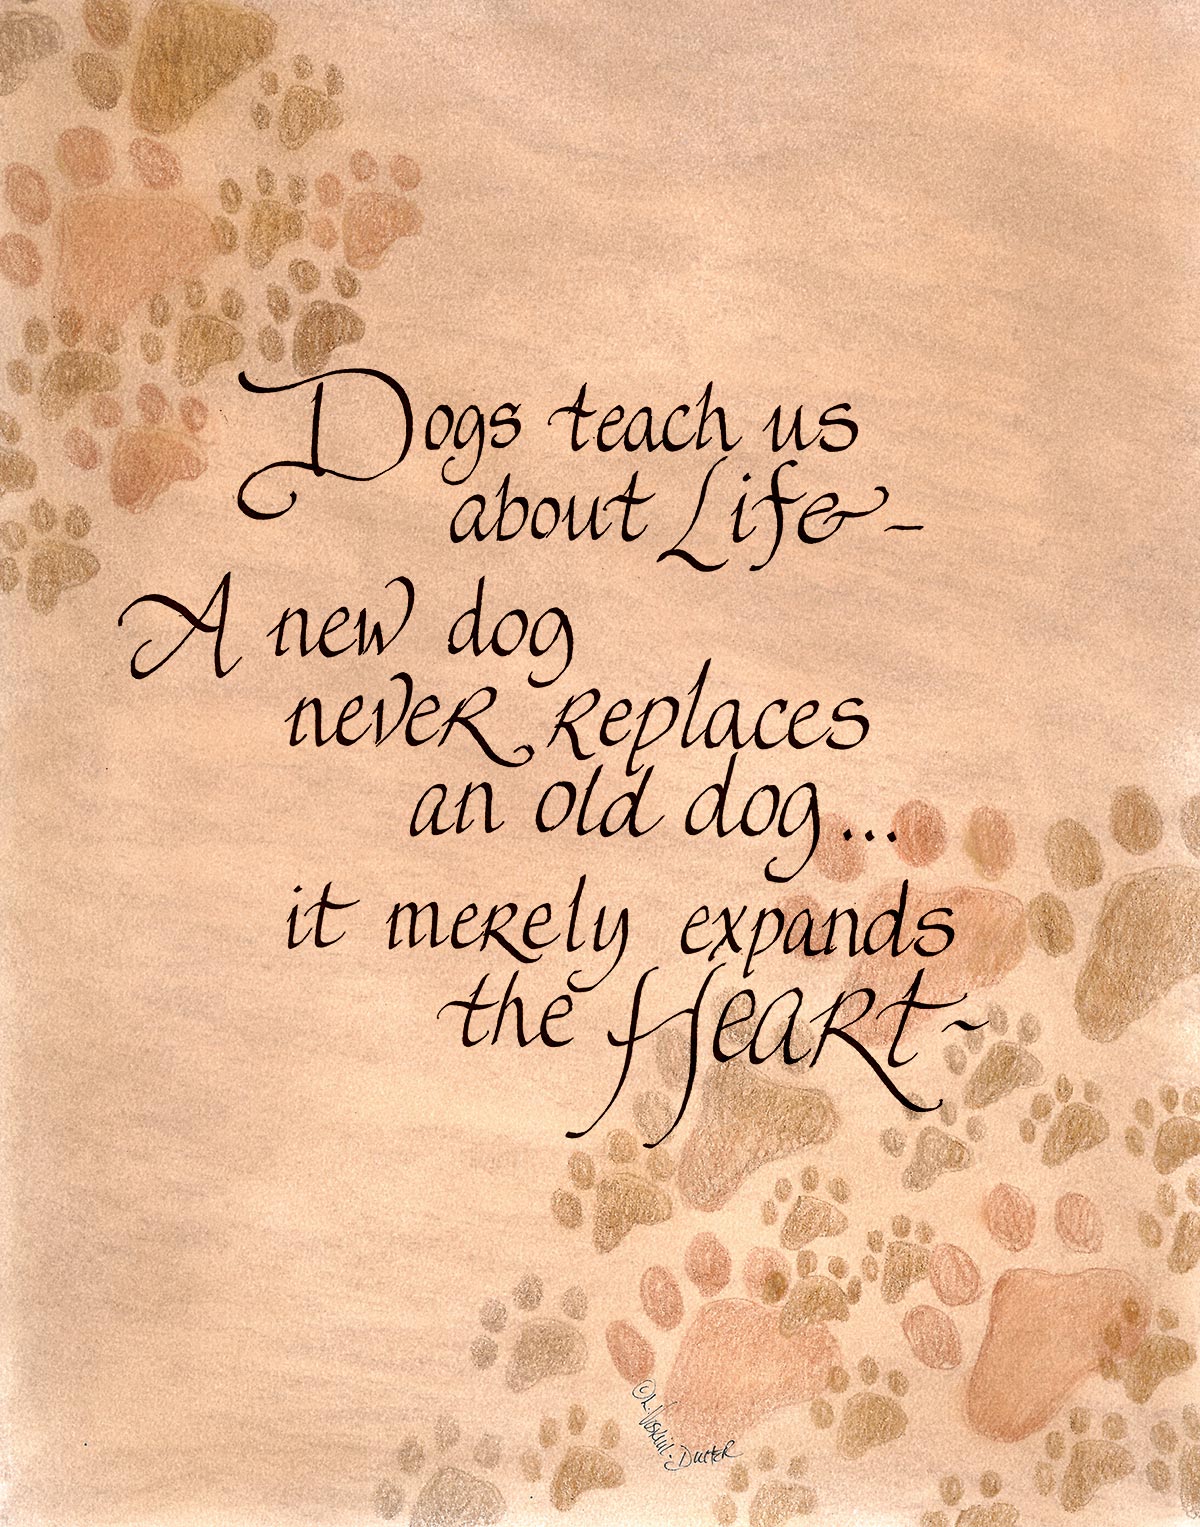 Dogs teach us
about Life~
A new dog
never replaces
an old dog...
it merely expands
the Heart~
©L.